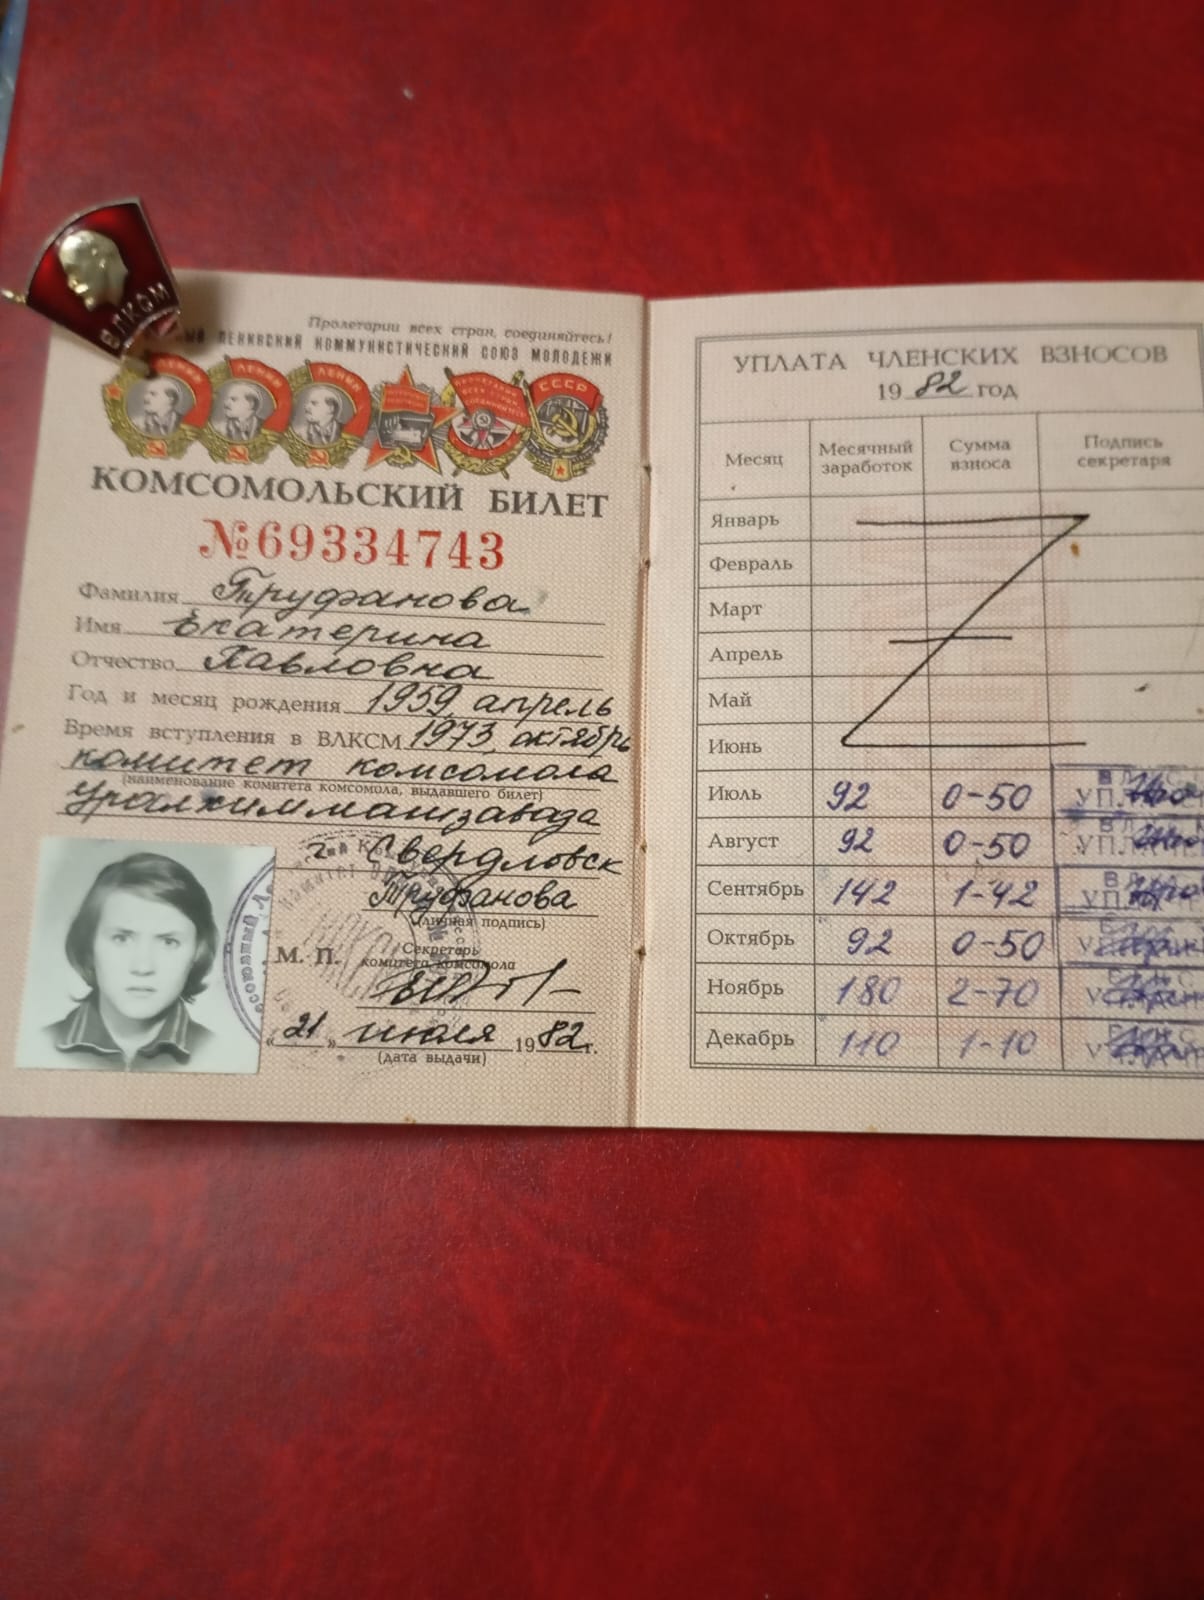 ВЛКСМ
Пролетарии всех стран, соединяйтесь!
ЛЕНИНСКИЙ КОММУНИСТИЧЕСКИЙ СОЮЗ МОЛОДЕЖИ
ЛЕНИН ЛЕНИН ЛЕНИН СССР
КОМСОМОЛЬСКИЙ БИЛЕТ
№69334743
Фамилия Труфанова
Имя Екатерина
Отчество Павловна
Год и месяц рождения 1959, апрель
Время вступления в ВЛКСМ 1973, октябрь
комитет комсомола
(наименование комитета комсомола, выдавшего билет)
Уралхиммашзавода
г. Свердловск
Труфанова
(личная подпись)
М. П.
Секретарь
комитета комсомола
«21» июля 1982 г.
(дата выдачи)
УПЛАТА ЧЛЕНСКИХ ВЗНОСОВ
1982 год
Месяц Месячный заработок Сумма взноса Подпись секретаря
Январь
Февраль
Март
Апрель
Май
Июнь
Июль 92 0-50
Август 92 0-50
Сентябрь 142 1-42
Октябрь 92 0-50
Ноябрь 180 2-70
Декабрь 110 1-10